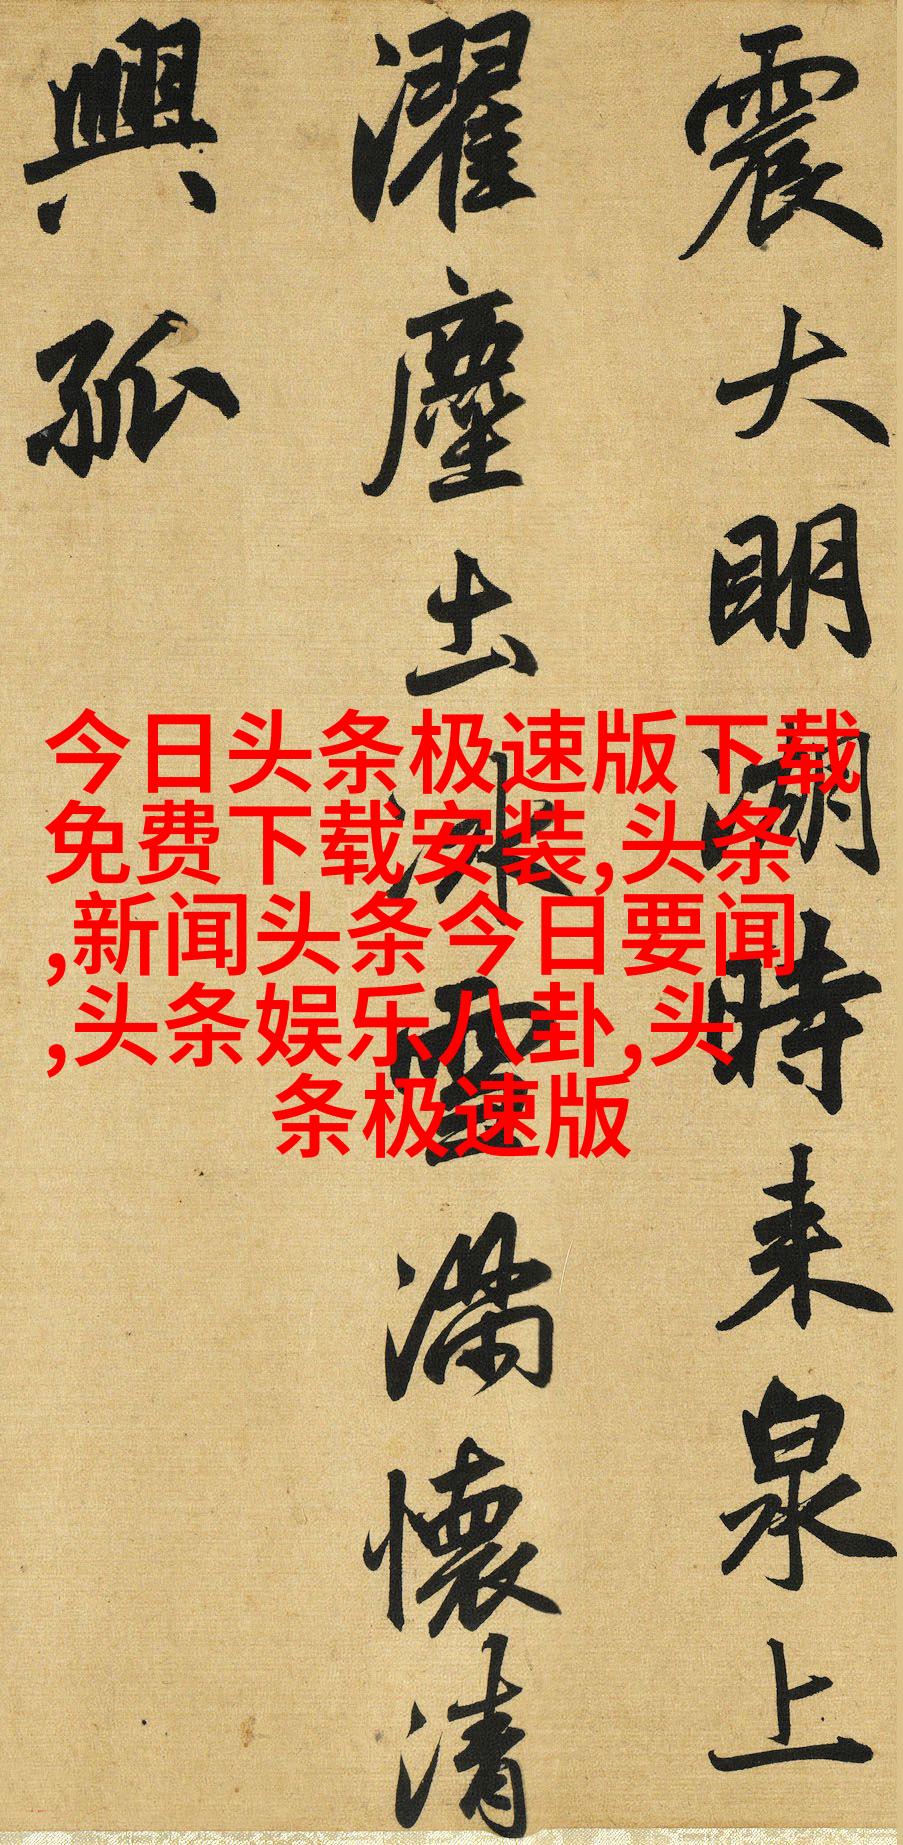 震大明湖時来泉上
濯塵土冰雪滿懷清
興孤
今日头条极速版下载
免费下载安装,头条
,新闻头条今日要闻
,头条娱乐八卦,头
条极速版